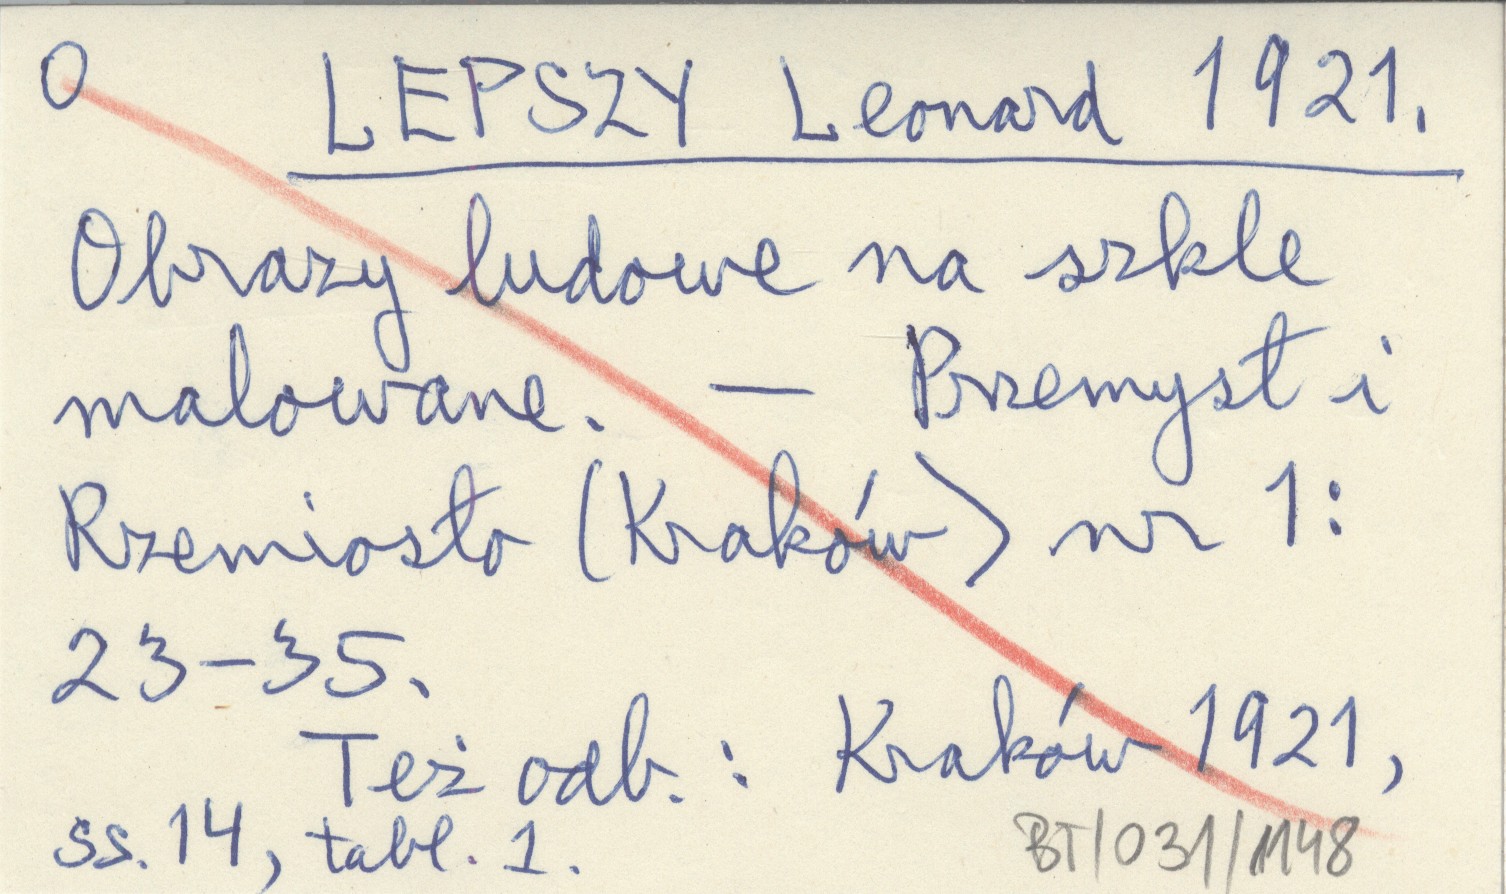 O LEPSZY Leonard 1921.
Obrazy ludowe na szkle
malowane. — Przemysł i
Rzemiosło (Kraków) nr 1:
23-35.
Też odb.: Kraków 1921,
ss. 14, tabl. 1.
BT/031/1148